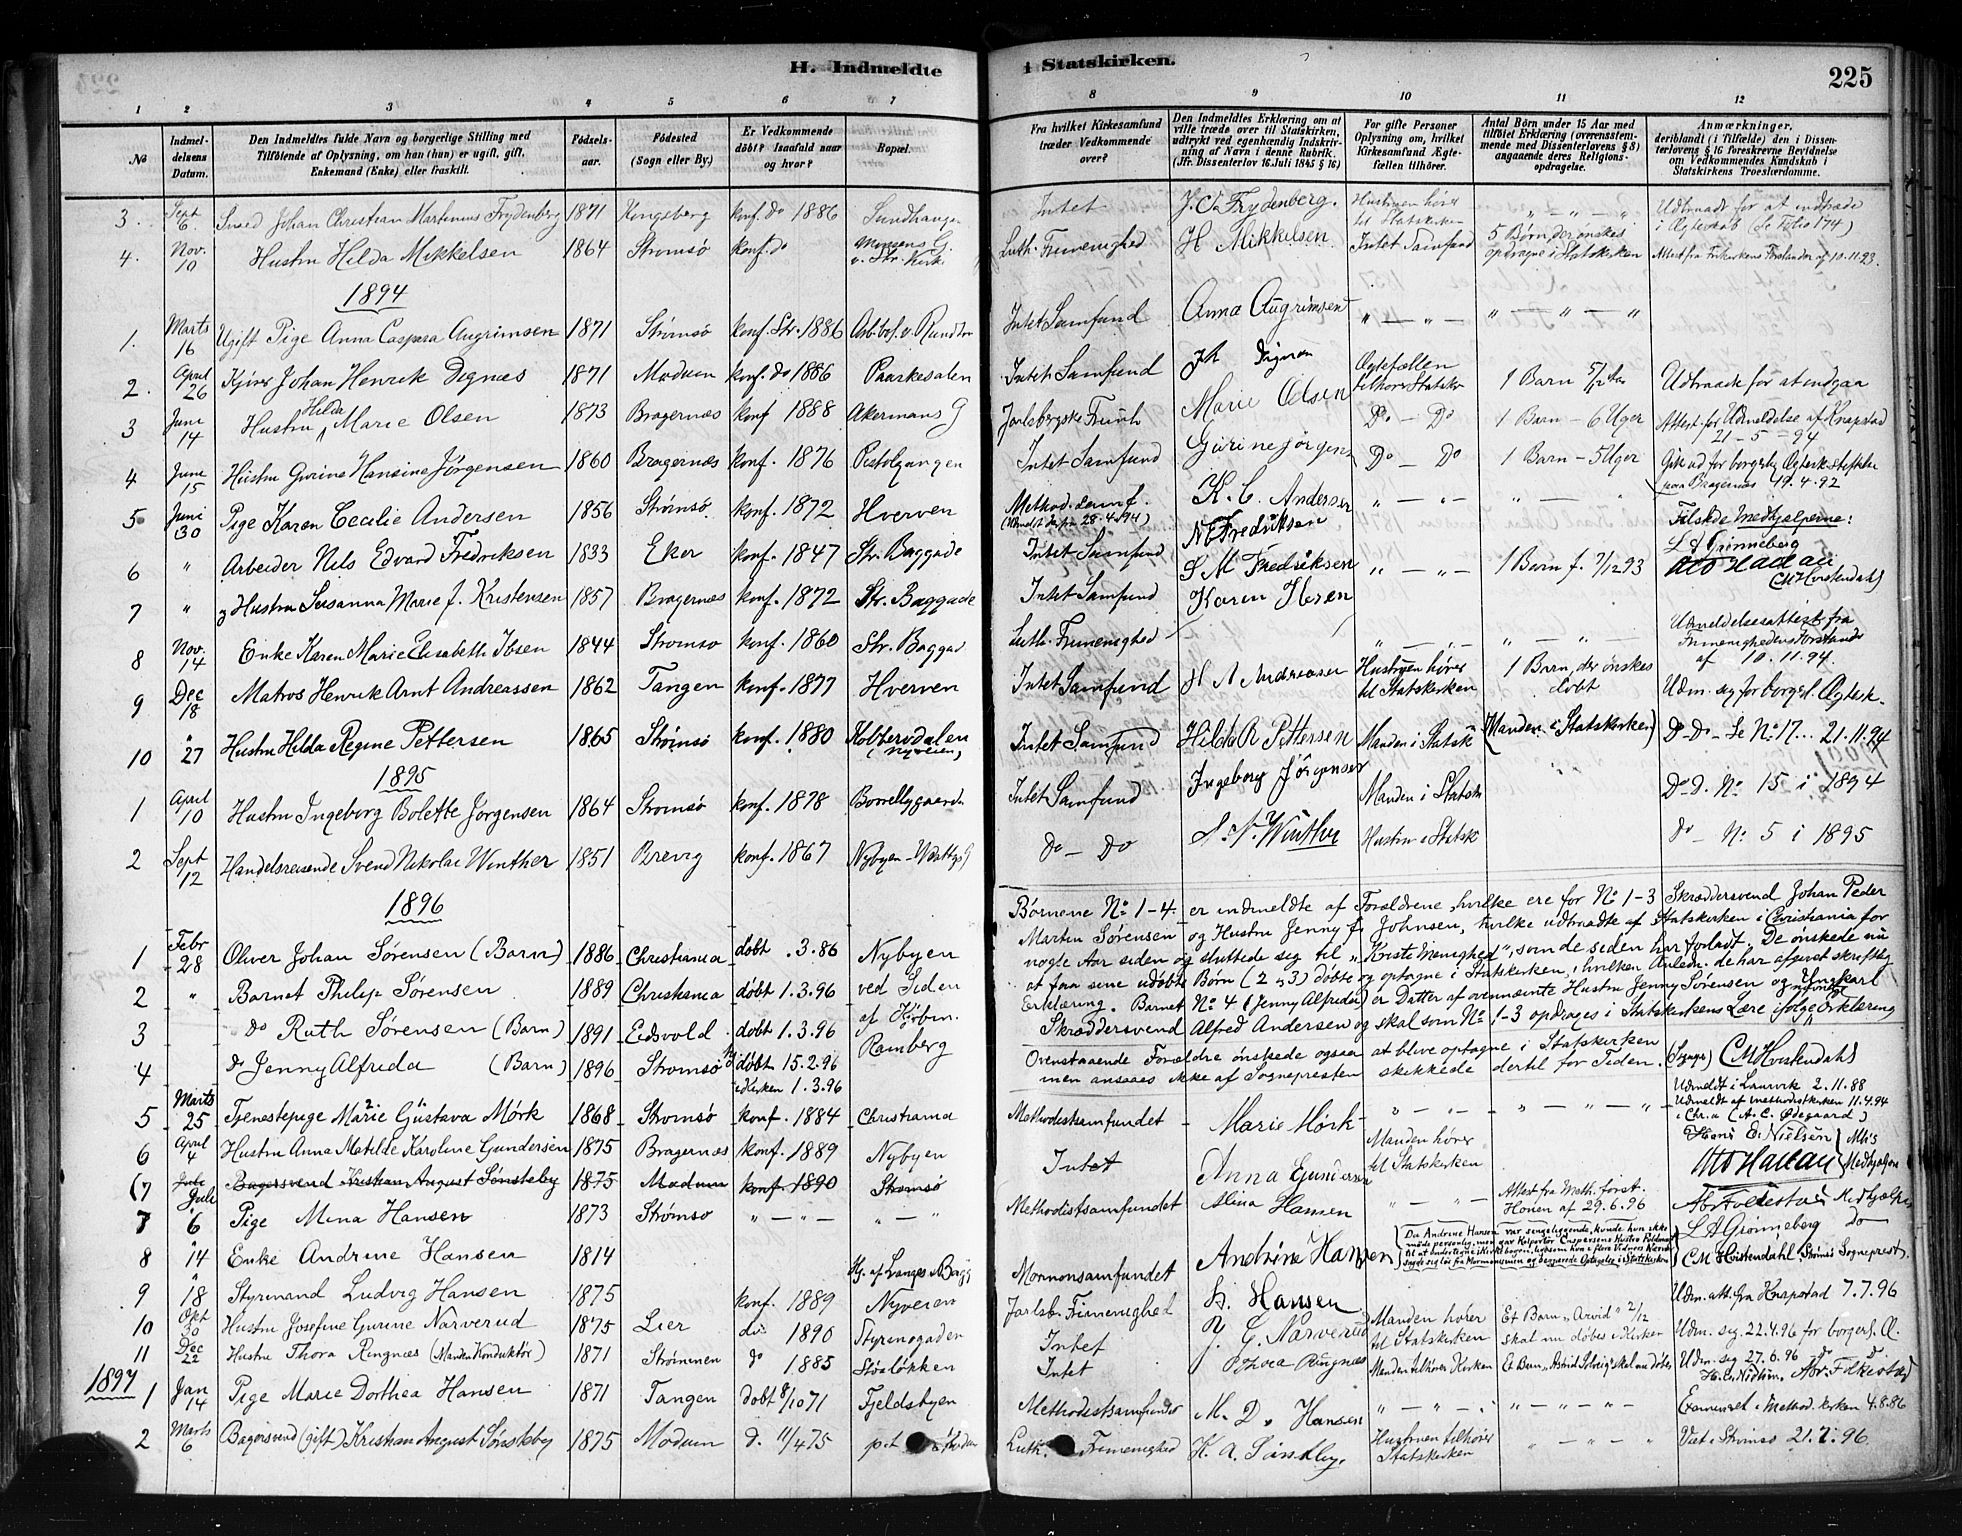 H. Indmeldte i Statskirken. 225
1 2 3 4 5 6 7 8 9 10 11 12
No
Indmeldelsens Datum.
Den Indmeldtes fulde Navn og borgerlige Stilling med Tilföiende af Oplysning, om han (hun) er ugift, gift, Enkemand (Enke) eller fraskilt.
Födselsaar.
Födested (Sogn eller By.)
Er Vedkommende döbt? Isaafald naar og hvor?
Bopæl.
Fra hvilket Kirkesamfund træder Vedkommende over?
Den Indmeldtes Erklæring om at ville træde over til Statskirken, udtrykt ved egenhændig Indskrivning af Navn i denne Rubrik. (Jfr. Dissenterlov 16. Juli 1845 § 16)
For gifte Personer Oplysning om, hvilket Kirkesamfund Ægtefællen tilhörer.
Antal Börn under 15 Aar med tilföiet Erklæring (overensstemmende med Dissenterlovens § 8) angaaende deres Religionsopdragelse.
Anmærkninger, deriblandt (i Tilfælde) den i Dissenterlovens § 16 foreskrevne Bevidnelse om Vedkommendes Kundskab i Statskirkens Troeslærdomme.
3. Sept 6. Svend Johan Christian Martinius Frydenberg 1871 Kongsberg konf. do 1886 Intet J. C. Frydenberg. Hustruen hører til Statskirken " — " — " Udtraadt for at indtræde i Ægteskab (Se Folio 174)
4. Nov. 10 Hustru Hilda Mikkelsen 1864 Strømsø konf. do Luth. Frimenighed H Mikkelsen. Intet Samfund 5 Børn der ønskes opdragne i Statskirken Attest fra Frikirkens Forstander af 10.11.93.
1894
1. Marts 16 Ugift Pige Anna Caspara Augrimsen 1871 Strømsø konf. Str. 1886 Intet Samfund Anna Augrimsen " — " — " " — " — "
2. April 26 Johan Henrik Dignæs 1871 Modum konf. do 1886 Paarkesalen Intet Samfund J H Dignæs Ægtefællen tilhører Statsk. 1 Barn Udtraadt for at indgaa
3 Juni 14 Hustru Hilda Marie Olsen 1873 Bragernæs konf 1888 Akermans G Jarlsbergske Frimh Marie Olsen Do — Do 1 Barn - 6 Uger Attest for Udmeldelse af Knapstad 21-5-94
4 Juni 15 Hustru Gurine Hansine Jørgensen 1860 Bragernæs konf. 1876 Pistolgangen Intet Samfund Gurine Jørgensen Do — Do 1 Barn - 5 Uger Gik ud for borgerlig Ægtesk. paa Bragernæs 19.4.92
5 Juni 30 Pige Karen Cecilie Andersen 1856 Strømsø. konf. 1872 Hverven Method.samf. (Udmeldt 28.4.94) K. C. Andersen " — " — " Tilstede Medhjælperne:
6 " Arbeider Nils Edvard Fredriksen 1833 Eker konf. 1847 Str. Baggade Intet Samfund N E Fredriksen " — " — " 1 Barn f. 7/12 93 L A Grønneberg Otto Hallau (CMHvistendahl)
7 " Hustru Susanna Marie f. Kristensen 1857 Bragernæs konf. 1872 Str. Baggade Intet Samfund S M Fredriksen
8 Nov. 14 Enke Karen Marie Elisabeth Ibsen 1844 Strømsø konf. 1860 Str. Baggade Luth. Frimenighed Karen Ibsen " — " — " Udmeldelsesattest fra Frimenighedens Forstander af 10.11.94.
9 Dec 18 Matros Henrik Arnt Andreassen 1862 Tangen konf. 1877 Hverven Intet Samfund H A Andreasen Hustruen hører til Statskirken 1 Barn, der ønskes døbt Udm. sig for borgerl. Ægtesk.
10 " 27 Hustru Hilda Regine Pettersen 1865 Strømsø konf. 1880 Kobbervdalen (Nyveien) Intet Samfund Hilda R Pettersen Manden i Statsk (Manden i Statskirken) Do Do - Se No 17... 21.11.94
1895
1 April 10 Hustru Ingeborg Bolette Jørgensen 1864 Strømsø konf. 1878 Intet Samfund Ingeborg Jørgensen Manden i Statsk Do D. No 15 i 1894
2 Sept 12 Handelsreisende Svend Nikolai Winther 1851 Brevig konf. 1867 Nybyen Do — Do S. N. Winther Hustru i Statsk Do — No 5 i 1895
1896
1 Febr 28 Oliver Johan Sørensen (Barn) 1886 Christiania døbt .3.86 Nybyen
2 " Barnet Philip Sørensen 1889 Christiania døbt 1.3.96 ved Siden
3 Do Ruth Sørensen (Barn) 1891 Eidsvold døbt 1.3.96 af
4 Do Jenny Alfreda (Barn) 1896 Strømsø døbt 15.2.96 i Kirken 1.3.96 Ramberg
Børnene No 1-4. er indmeldte af Forældrene, hvilke ere for No 1-3 Skræddersvend Johan Peder
Martin Sørensen og Hustru Jenny f. Johnsen, hvilke udtraadte af Statskirken i Christiania for
nogle Aar siden og sluttede sig til „Kristi Menighed", som de siden har forladt. De ønskede nu
at faa sine udøbte Børn (2 og 3) døbte og optagne i Statskirken, i hvilken Anledn. de har afgivet skriftlig
Erklæring. Barnet No 4 (Jenny Alfreda) er Datter af ovennævnte Hustru Jenny Sørensen og Ungkarl
Skræddersvend Alfred Andersen og skal som No 1-3 opdrages i Statskirkens Lære ifølge Erklæring
Ovenstaaende Forældre ønskede ogsaa at blive optagne i Statskirken
men ansaaes ikke af Sognepresten skikkede dertil for Tiden. (Sognepr) CMHvistendahl
5 Marts 25 Tjenestepige Marie Gustava Mørk 1868 Strømsø konf. 1884 Christiania Methodistsamfundet Marie Mørk " — " — " " — " — " Udmeldt i Laurvik 2.11.88 Udmeldt af Methodistkirken 11.4.94 i Chr.a (A. C. Ødegaard)
6 April 4 Hustru Anna Matilde Karoline Gundersen 1875 Bragernæs konf. 1889 Nybyen Intet Anna Gundersen Manden hører til Statskirken Hans E. Nielsen Otto Hallau Medhjælpere
(7 Juli Bagersvend Kristian August Sønsteby 1875 Modum konf. 1890 Strømsø
7 Juli 6 Pige Mina Hansen 1873 Strømsø " — " — " Methodistsamfundet Mina Hansen " — " — " Attest fra Meth. forst. Honen af 29.6.96 Abr Folkestad Medhjælper
8 " 14 Enke Andrine Hansen 1814 Mormonsamfundet Andrine Hansen Da Andrine Hansen var sengeliggende, kunde hun ikke møde personlig, men gav Kolportør Caspersens Hustru Fuldmagt til at undertegne i Kirkebogen, ligesom hun i flere Vidners Nærvær sagde sig løs fra Mormonismen og begjærede Optagelse i Statskirken L A Grønneberg do CM Hvistendahl, Strømsø Sogneprest.
9 " 18 Styrmand Ludvig Hansen 1875 konf. 1889 Nyveien Jarlsb. Frimenighed L. Hansen Udm. att. fra Knapstad 7.7.96
10 Okt 30 Hustru Josefine Gurine Narverud 1875 Lier do 1890 Styrmogaden Intet J. G. Narverud Manden hører til Statskirken Et Barn „Arvid" 2/12 skal nu døbes i Kirken Udm. sig. 22.4.96 for borgerl. Æ.
11 Dec 22 Hustru Thora Ringnæs (Manden Konduktør) 1871 Strømmen do 1885 Støaløkken Intet Thora Ringnæs Manden tilhører Kirken Et Barn „Astrid Solveig" skal nu døbes Udm. sig 27.6.96 do d. H. E. Nielsen. Abr. Folkestad
1897
1 Jan 14 Pige Marie Dorthea Hansen 1871 Tangen døbt 8/10 71 Fjeldsbyen Methodistsamfundet M. D. Hansen " — " — " " — " — " i Method. kirken 4.8.86
2 Marts 6 Bagersvend (gift) Kristian August Sønsteby 1875 Modum d. 11/4 75 p.t. Luth. Frimenighed K. A. Sønsteby. Hustruen tilhører Statskirken " — " — " i Strømsø 21.7.96.